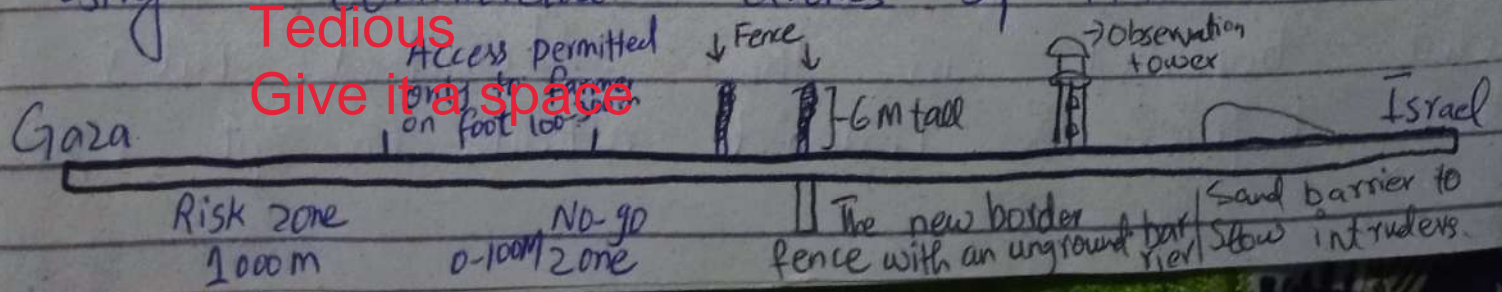 Tedious
Give it a space
Access permitted
on foot 100-
Fence
→Observation
tower
Gaza
6m tall
Israel
Risk zone
1000m
No-go
0-100M zone
The new border
fence with an unground barrier
Sand barrier to
slow intruders.